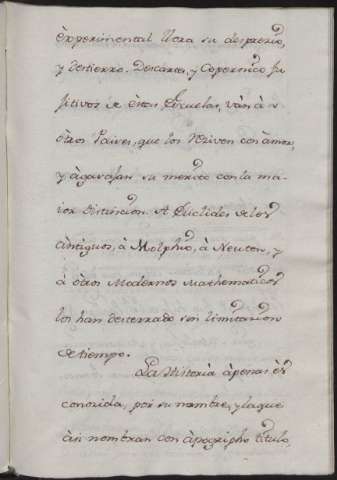 èxperimental llora su desprezio,
y destierro. Descartes, y Copernico fu
jitivos de èstas Escuelas, ván à
òtros Paises, que los reziven con àmor,
y àgasajan su merito con la ma-
ior distincion. A Euclides de los
àntiguos, à Wolphio, à Neuton, y
à òtros Modernos Mathematicos
los han desterrado sin limitacion
de tiempo.
La Historia àpenas ès
conozida, por su nombre, y la que
àsi nombran con àpogripho titulo,